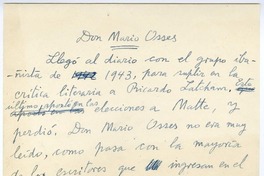 Don Mario Osses
Llegó al diario con el grupo iba-
ñista de 1943, para suplir en la
crítica literaria a Ricardo Latcham. Este
último apostó en las
elecciones a Matte, y
perdió. Don Mario Osses no era muy
leído, como pasa con la mayoría
de los escritores que ingresan en el